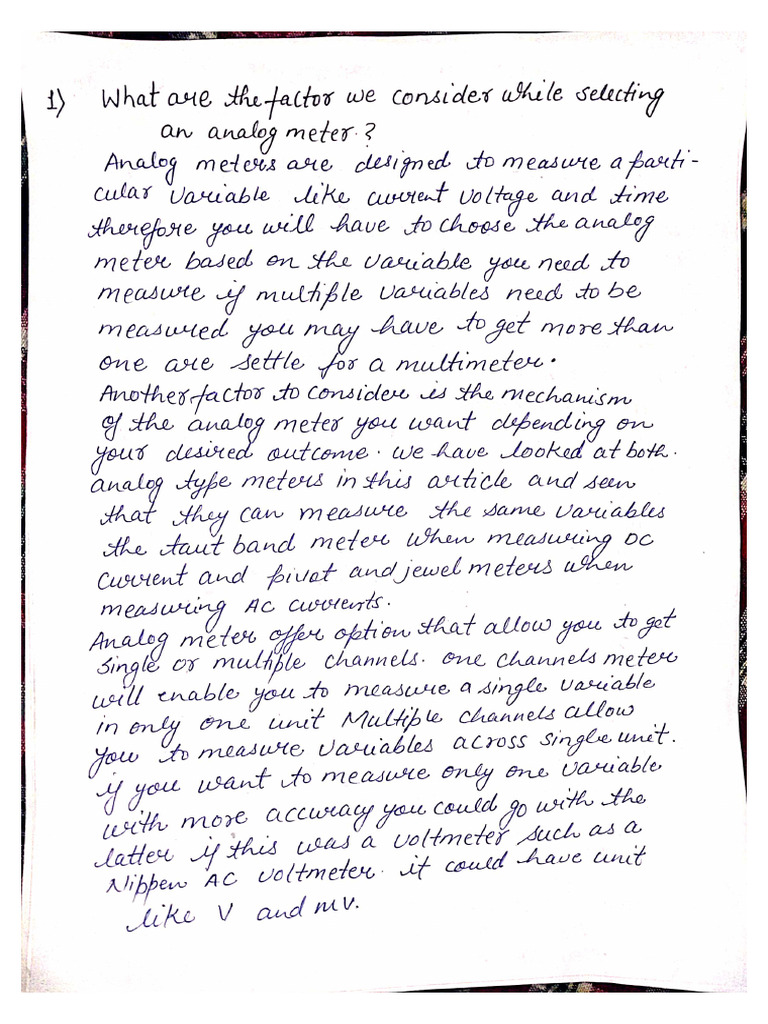 1) What are the factor we consider while selecting
an analog meter.?
Analog meters are designed to measure a parti-
cular variable like current voltage and time
therefore you will have to choose the analog
meter based on the variable you need to
measure if multiple variables need to be
measured you may have to get more than
one are settle for a multimeter.
Another factor to consider is the mechanism
of the analog meter you want depending on
your desired outcome. we have looked at both.
analog type meters in this article and seen
that they can measure the same variables
the taut band meter when measuring DC
current and pivot and jewel meters when
measuring AC currents.
Analog meter offer option that allow you to get
single or multiple channels. one channels meter
will enable you to measure a single variable
in only one unit Multiple channels allow
you to measure variables across single unit.
if you want to measure only one variable
with more accuracy you could go with the
latter if this was a voltmeter such as a
Nippen AC voltmeter. it could have unit
like V and mv.